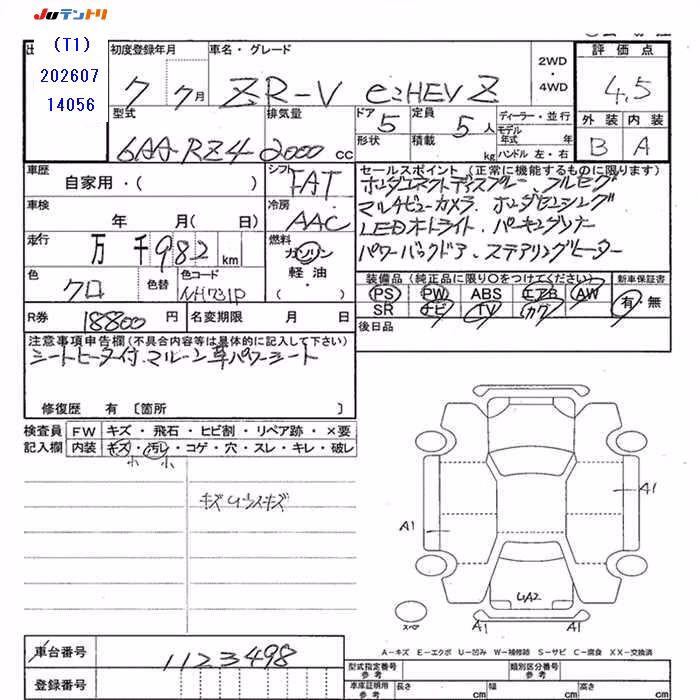 JUテントリ
(T1)
202607
14056
初度登録年月
7 7月
車名・グレード
ZR-V e:HEV Z
2WD
・
4WD
評価点
4.5
外装 内装
B A
型式
6AA-RZ4
排気量
2000 cc
ドア 5
形状
定員 5 人
積載 kg
ディーラー・並行
モデル年式 年
ハンドル 左・右
車歴
自家用・( )
車検
年 月( 日)
走行
万 千 982 km
色
クロ
色替
色コード
NH731P
シフト
FAT
冷房
AAC
燃料
ガソリン
軽油
・( )
セールスポイント(正常に機能するものに限ります)
ホンダコネクトディスプレー、フルセグ
マルチビューカメラ、ホンダセンシング
LEDオートライト、パーキングソナー
パワーバックドア、ステアリングヒーター
装備品(純正品に限り○をつけてください)
PS PW ABS エアB AW
SR ナビ TV カワ
新車保証書
有・無
後日品
R券 18800 円
名変期限 月 日
注意事項申告欄(不具合内容等は具体的に記入して下さい)
シートヒーター付、マルーン革パワーシート
修復歴 有〔箇所 〕
検査員 FW キズ・飛石・ヒビ割・リペア跡・×要
記入欄 内装 キズ・汚レ・コゲ・穴・スレ・キレ・破レ
小 小
A1
A1
UA2
スペア
A1 A1
A-キズ E-エクボ U-凹み W-補修跡 S-サビ C-腐食 XX-交換済
車台番号
1123498
登録番号
型式指定番号
参考
類別区分番号
参考
車庫証明用
参考
長さ cm 幅 cm 高さ cm